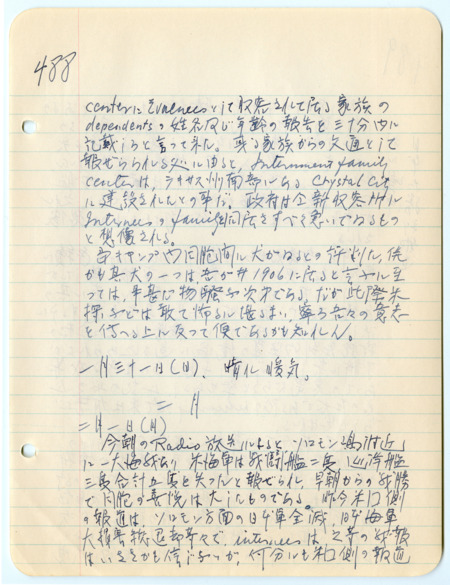 488
centerにEvacueesとして収容されて居る家族の
dependentsの姓名及び年齢の報告を三十分内に
記載しろと言って来た。或る家族からの文通として
報ぜられる処に由ると、Internment family
centerは、テキサス州南部にある Crystal City
に建設されたとの事だ。政府は全新収容所に
Interneesのfamily同居をすべく急いでゐるもの
と想像される。
各キャンプ内同胞間に犬がゐるとの評判だ、
かも其犬の一つは吾が#1906に居ると言ふに至
っては、甚だ物騒な次第である。だが此際米
探などは敢て怖るゝに足るまい、寧ろ吾々の意志
を伝へる上に反って便であるかも知れん。
一月三十一日(日)、晴れ暖気。
二月
二月一日(月)
今朝のRadio放送によると ソロモン島附近
に一大海戦あり 米海軍は戦闘艦二隻、巡洋艦
三隻合計五隻を失つたと報ぜられ、早朝からの戦勝
で同胞の喜悦は大したものである。昨今米国側
の報道は、ソロモン方面の日軍全滅、日本海軍
大損害撤退等々で、interneesは、之等の戦報
はいさゝかも信じないが、何分にも米国側の報道